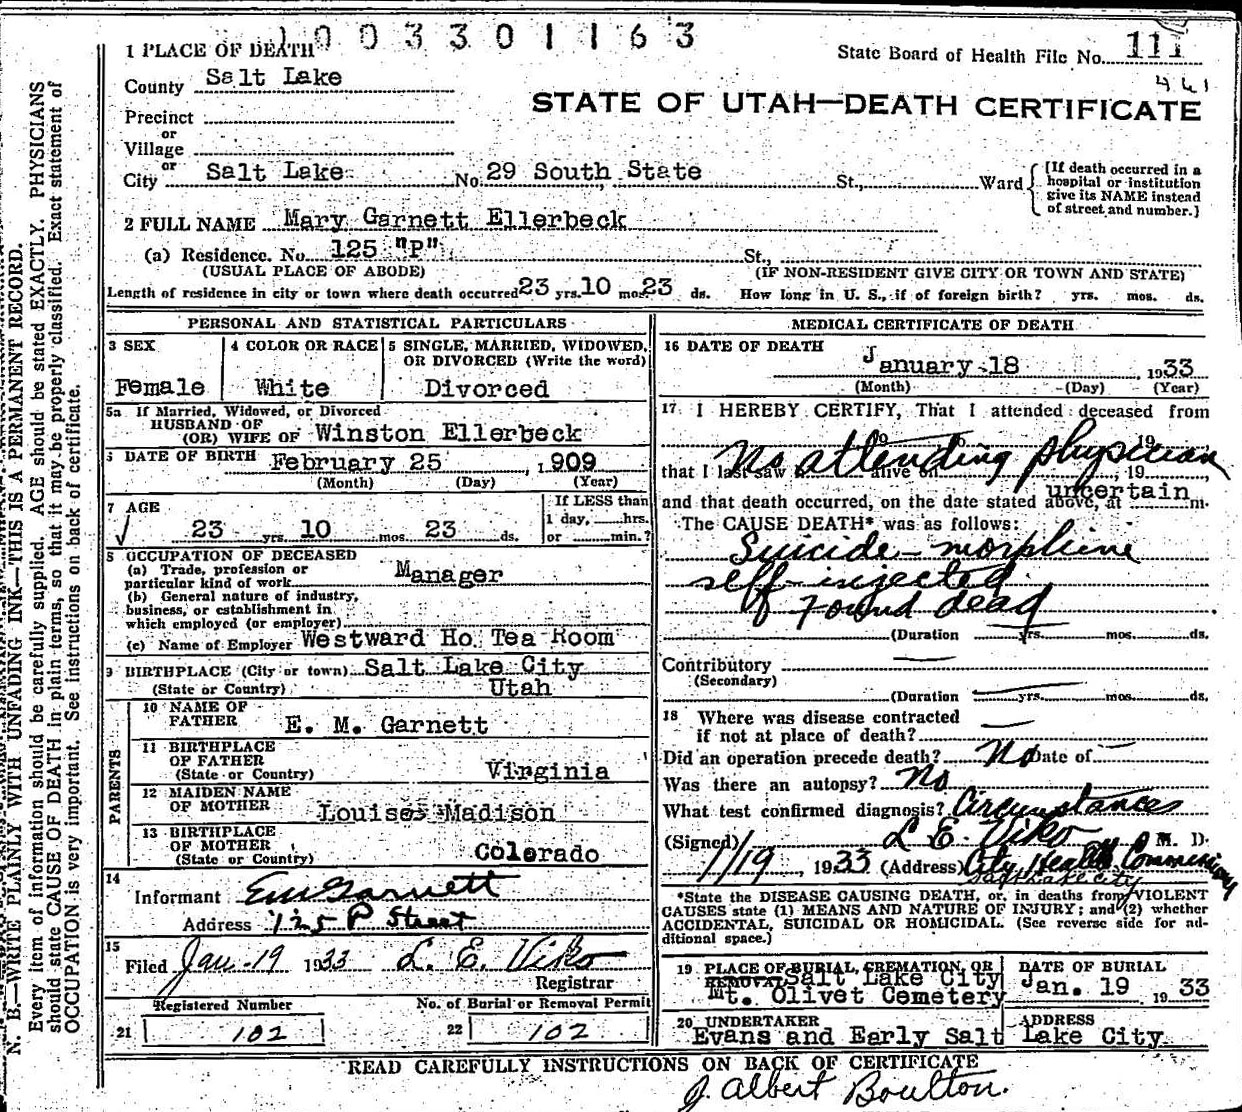 1003301163
1 PLACE OF DEATH
State Board of Health File No. 111
461
County Salt Lake
STATE OF UTAH—DEATH CERTIFICATE
Precinct
or
Village
or
City Salt Lake No. 29 South State St., Ward
[If death occurred in a
hospital or institution
give its NAME instead
of street and number.]
2 FULL NAME Mary Garnett Ellerbeck
(a) Residence. No. 125 "P" St.,
(USUAL PLACE OF ABODE) (IF NON-RESIDENT GIVE CITY OR TOWN AND STATE)
Length of residence in city or town where death occurred 23 yrs. 10 mos. 23 ds. How long in U. S., if of foreign birth? yrs. mos. ds.
PERSONAL AND STATISTICAL PARTICULARS
3 SEX
Female
4 COLOR OR RACE
White
5 SINGLE, MARRIED, WIDOWED,
OR DIVORCED (Write the word)
Divorced
5a If Married, Widowed, or Divorced
HUSBAND OF
(OR) WIFE OF Winston Ellerbeck
DATE OF BIRTH February 25, 1909
(Month) (Day) (Year)
7 AGE
23 yrs. 10 mos. 23 ds.
If LESS than
1 day, hrs.
or min.?
OCCUPATION OF DECEASED
(a) Trade, profession or
particular kind of work Manager
(b) General nature of industry,
business, or establishment in
which employed (or employer)
(c) Name of Employer Westward Ho Tea Room
9 BIRTHPLACE (City or town) Salt Lake City
(State or Country) Utah
PARENTS
10 NAME OF
FATHER E. M. Garnett
11 BIRTHPLACE
OF FATHER
(State or Country) Virginia
12 MAIDEN NAME
OF MOTHER Louise Madison
13 BIRTHPLACE
OF MOTHER
(State or Country) Colorado
14
Informant EM Garnett
Address 125 P Street
15
Filed Jan-19 1933 L. E. Viko
Registrar
Registered Number
21 102
No. of Burial or Removal Permit
22 102
MEDICAL CERTIFICATE OF DEATH
16 DATE OF DEATH
January 18, 1933
(Month) (Day) (Year)
17 I HEREBY CERTIFY, That I attended deceased from
19
No attending physician
that I last saw h alive on , 19
and that death occurred, on the date stated above, at uncertain m.
The CAUSE DEATH* was as follows:
Suicide - morphine
self-injected
Found dead
(Duration yrs. mos. ds.
Contributory
(Secondary)
(Duration yrs. mos. ds.
18 Where was disease contracted
if not at place of death?
Did an operation precede death? No Date of
Was there an autopsy? No
What test confirmed diagnosis? Circumstances
(Signed) L E. Viko M. D.
1/19 1933 (Address) City Health Commissioner
Salt Lake City
*State the DISEASE CAUSING DEATH, or, in deaths from VIOLENT
CAUSES state (1) MEANS AND NATURE OF INJURY; and (2) whether
ACCIDENTAL, SUICIDAL OR HOMICIDAL. (See reverse side for ad-
ditional space.)
19 PLACE OF BURIAL, CREMATION, OR
REMOVAL Salt Lake City
Mt. Olivet Cemetery
DATE OF BURIAL
Jan. 19 1933
20 UNDERTAKER
Evans and Early Salt
ADDRESS
Lake City
READ CAREFULLY INSTRUCTIONS ON BACK OF CERTIFICATE
J. Albert Boulton.
N. B.—WRITE PLAINLY WITH UNFADING INK—THIS IS A PERMANENT RECORD.
Every item of information should be carefully supplied. AGE should be stated EXACTLY. PHYSICIANS
should state CAUSE OF DEATH in plain terms, so that it may be properly classified. Exact statement of
OCCUPATION is very important. See instructions on back of certificate.